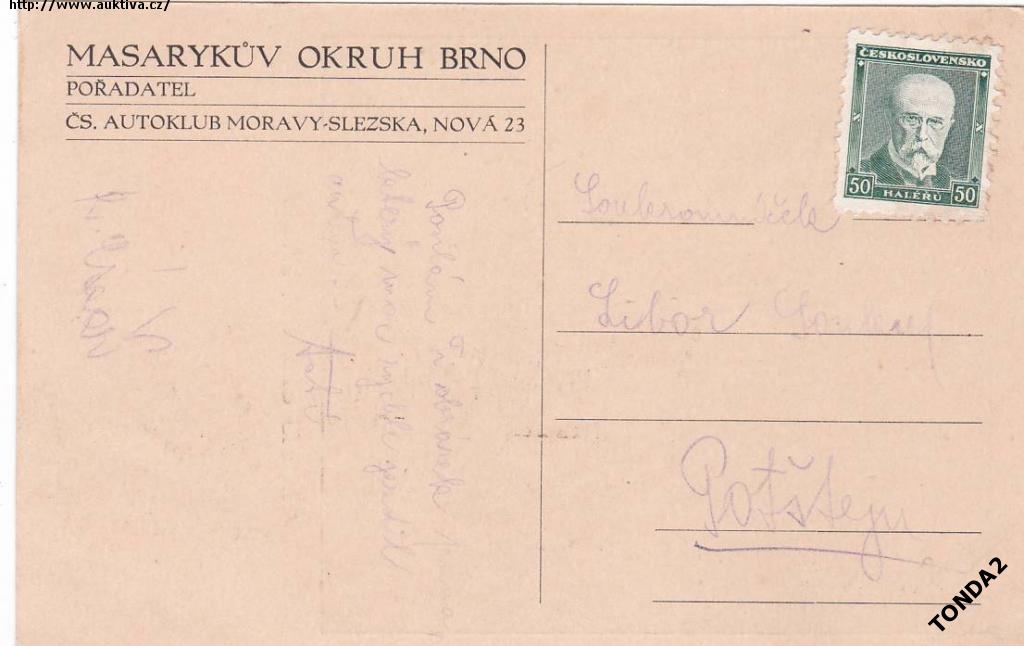 http://www.auktiva.cz/
MASARYKŮV OKRUH BRNO
POŘADATEL
ČS. AUTOKLUB MORAVY-SLEZSKA, NOVÁ 23
ČESKOSLOVENSKO
50 HALÉŘŮ 50
Posílám Ti obrázek
který moc rychle jezdil
Libor
Potštejn
TONDA2